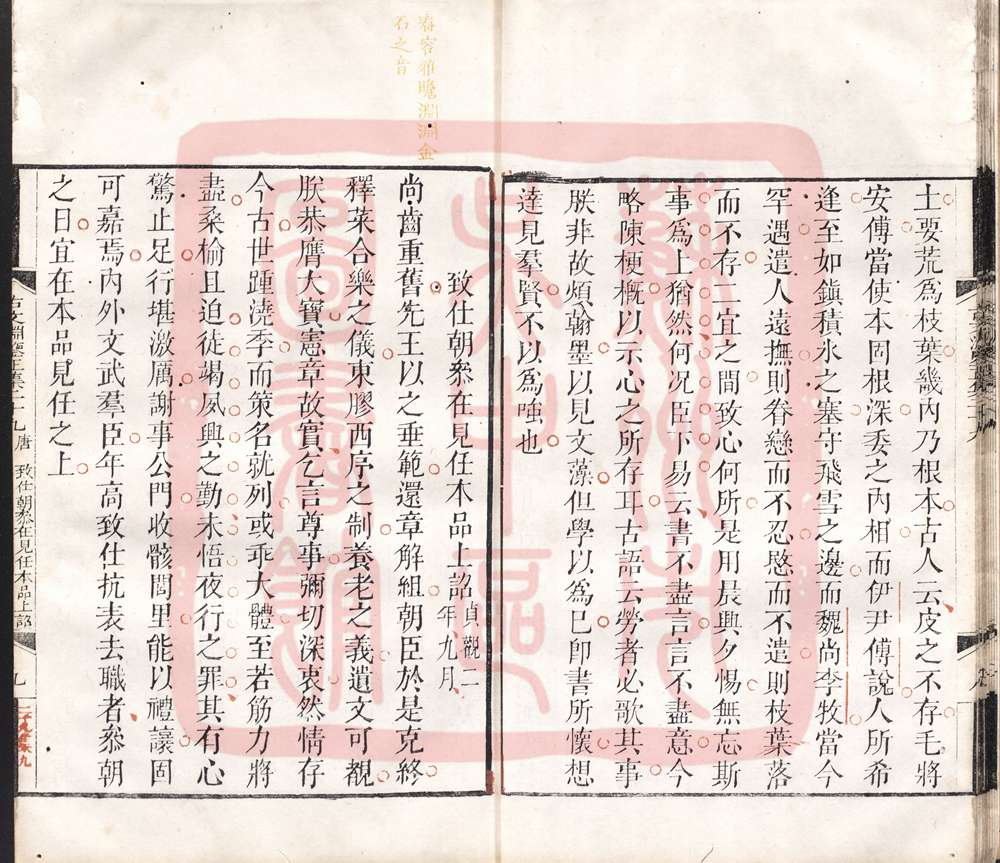 土要荒爲枝葉畿內乃根本古人云皮之不存毛將
安傅當使本固根深委之內相而伊尹傅說人所希
逢至如鎭積氷之塞守飛雪之邊而魏尚李牧當今
罕遇遣人遠撫則眷戀而不忍愍而不遣則枝葉落
而不存二宜之間致心何所是用晨興夕惕無忘斯
事爲上猶然何況臣下易云書不盡言言不盡意今
略陳梗槪以示心之所存耳古語云勞者必歌其事
朕非故煩翰墨以見文藻但學以爲已卽書所懷想
達見羣賢不以爲嗤也
春容雅瞻淵淵金
石之音
致仕朝叅在見任本品上詔貞觀二
年九月
尚齒重舊先王以之垂範還章解組朝臣於是克終
釋菜合樂之儀東膠西序之制養老之義遺文可覩
朕恭膺大寶憲章故實乞言尊事彌切深衷然情存
今古世踵澆季而策名就列或乖大體至若筋力將
盡桑榆且迫徒竭夙興之勤未悟夜行之罪其有心
驚止足行堪激厲謝事公門收骸閭里能以禮讓固
可嘉焉內外文武羣臣年高致仕抗表去職者叅朝
之日宜在本品見任之上
唐 致仕朝叅在見任本品上詔